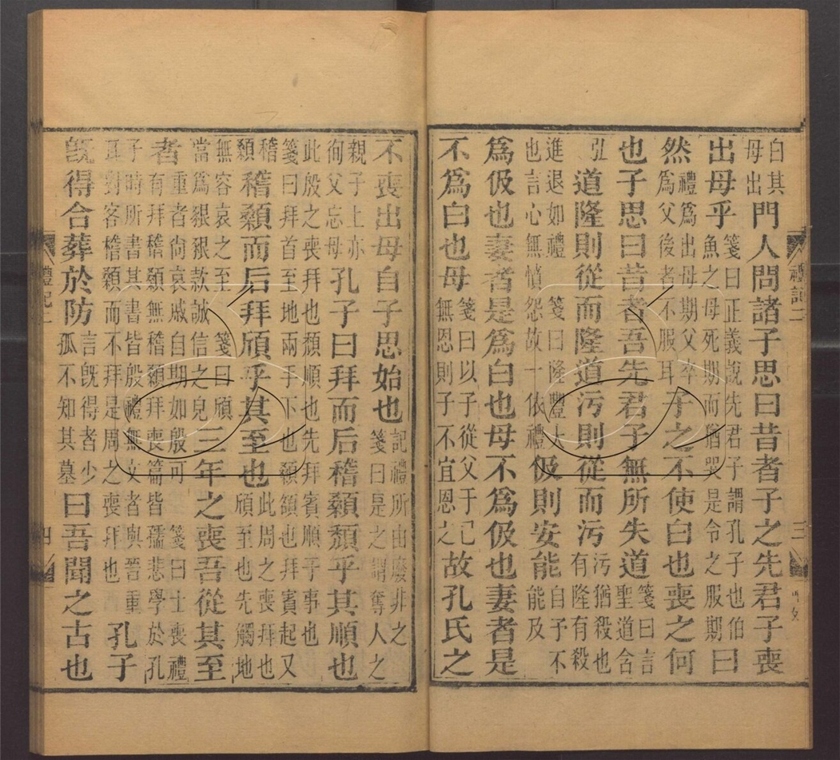 白其母出門人問諸子思曰昔者子之先君子喪
出母乎箋曰正義說先君子謂孔子也伯魚之母死期而猶哭是令之服期曰
然禮為出母期父卒為父後者不服耳子之不使白也喪之何
也子思曰昔者吾先君子無所失道箋曰言聖道含
弘道隆則從而隆道污則從而污污猶殺也有隆有殺
進退如禮箋曰隆豐大也言心無憤怨故一依禮伋則安能自予不能及
為伋也妻者是為白也母不為伋也妻者是
不為白也母箋曰以子從父于已無恩則子不宜恩之故孔氏之
禮記二
三
不喪出母自子思始也記禮所由廢非之箋曰是之謂奪人之
親子上亦徇父忘母孔子曰拜而后稽顙頹乎其順也
此殷之喪拜也頹順也先拜賓順于事也箋曰拜首至地兩手下也顙額也拜賓起又
稽顙稽顙而后拜頎乎其至也此周之喪拜也頎至也先觸地
無容哀之至箋曰頎當為豤豤款誠信之皃三年之喪吾從其至
者重者尚哀戚自期如殷可箋曰士喪禮有拜稽顙無稽顙拜喪篇皆孺悲學於孔
子時所書其書皆殷禮無文者與晉重耳對客稽顙而不拜是周之喪拜也孔子
既得合葬於防言既得者少孤不知其墓曰吾聞之古也
禮記二
四